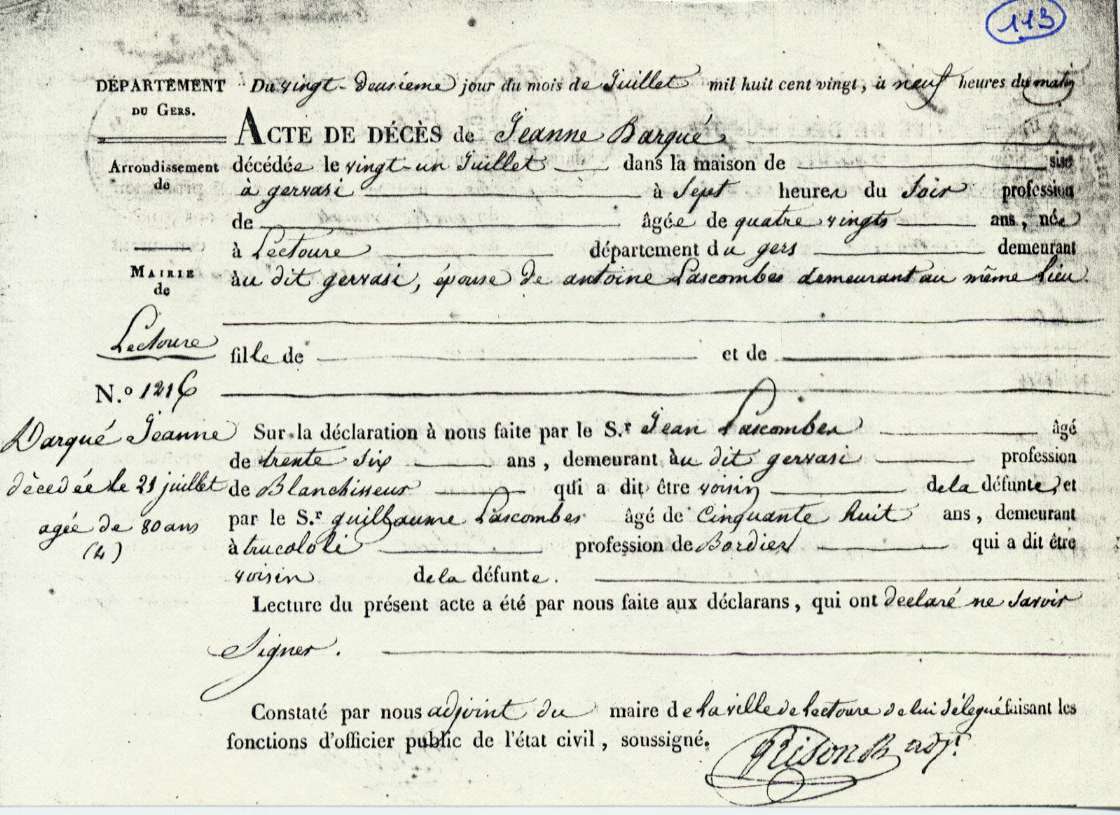 113
DÉPARTEMENT
DU GERS.
Arrondissement
de
MAIRIE
de
Lectoure
N.º 1216
Darqué Jeanne
décédée le 21 juillet
agée de 80 ans
(4)
Du vingt-deusième jour du mois de Juillet mil huit cent vingt, à neuf heures du matin
ACTE DE DÉCÈS de Jeanne Darqué
décédée le vingt-un Juillet dans la maison de sise
à gervasi à Sept heures du Soir profession
de âgée de quatre vingts ans, née
à Lectoure département du gers demeurant
àu dit gervasi, épouse de antoine Lascombes demeurant au même lieu
fille de et de
Sur la déclaration à nous faite par le S.r Jean Lascombes âgé
de trente six ans, demeurant àu dit gervasi profession
de Blanchisseur qui a dit être voisin de la défunte, et
par le S.r guillaume Lascombes âgé de Cinquante huit ans, demeurant
à trucololi profession de Bordier qui a dit être
voisin de la défunte.
Lecture du présent acte a été par nous faite aux déclarans, qui ont declaré ne Savoir
Signer.
Constaté par nous adjoint du maire de la ville de Lectoure de lui délégué faisant les
fonctions d'officier public de l'état civil, soussigné.
adjt